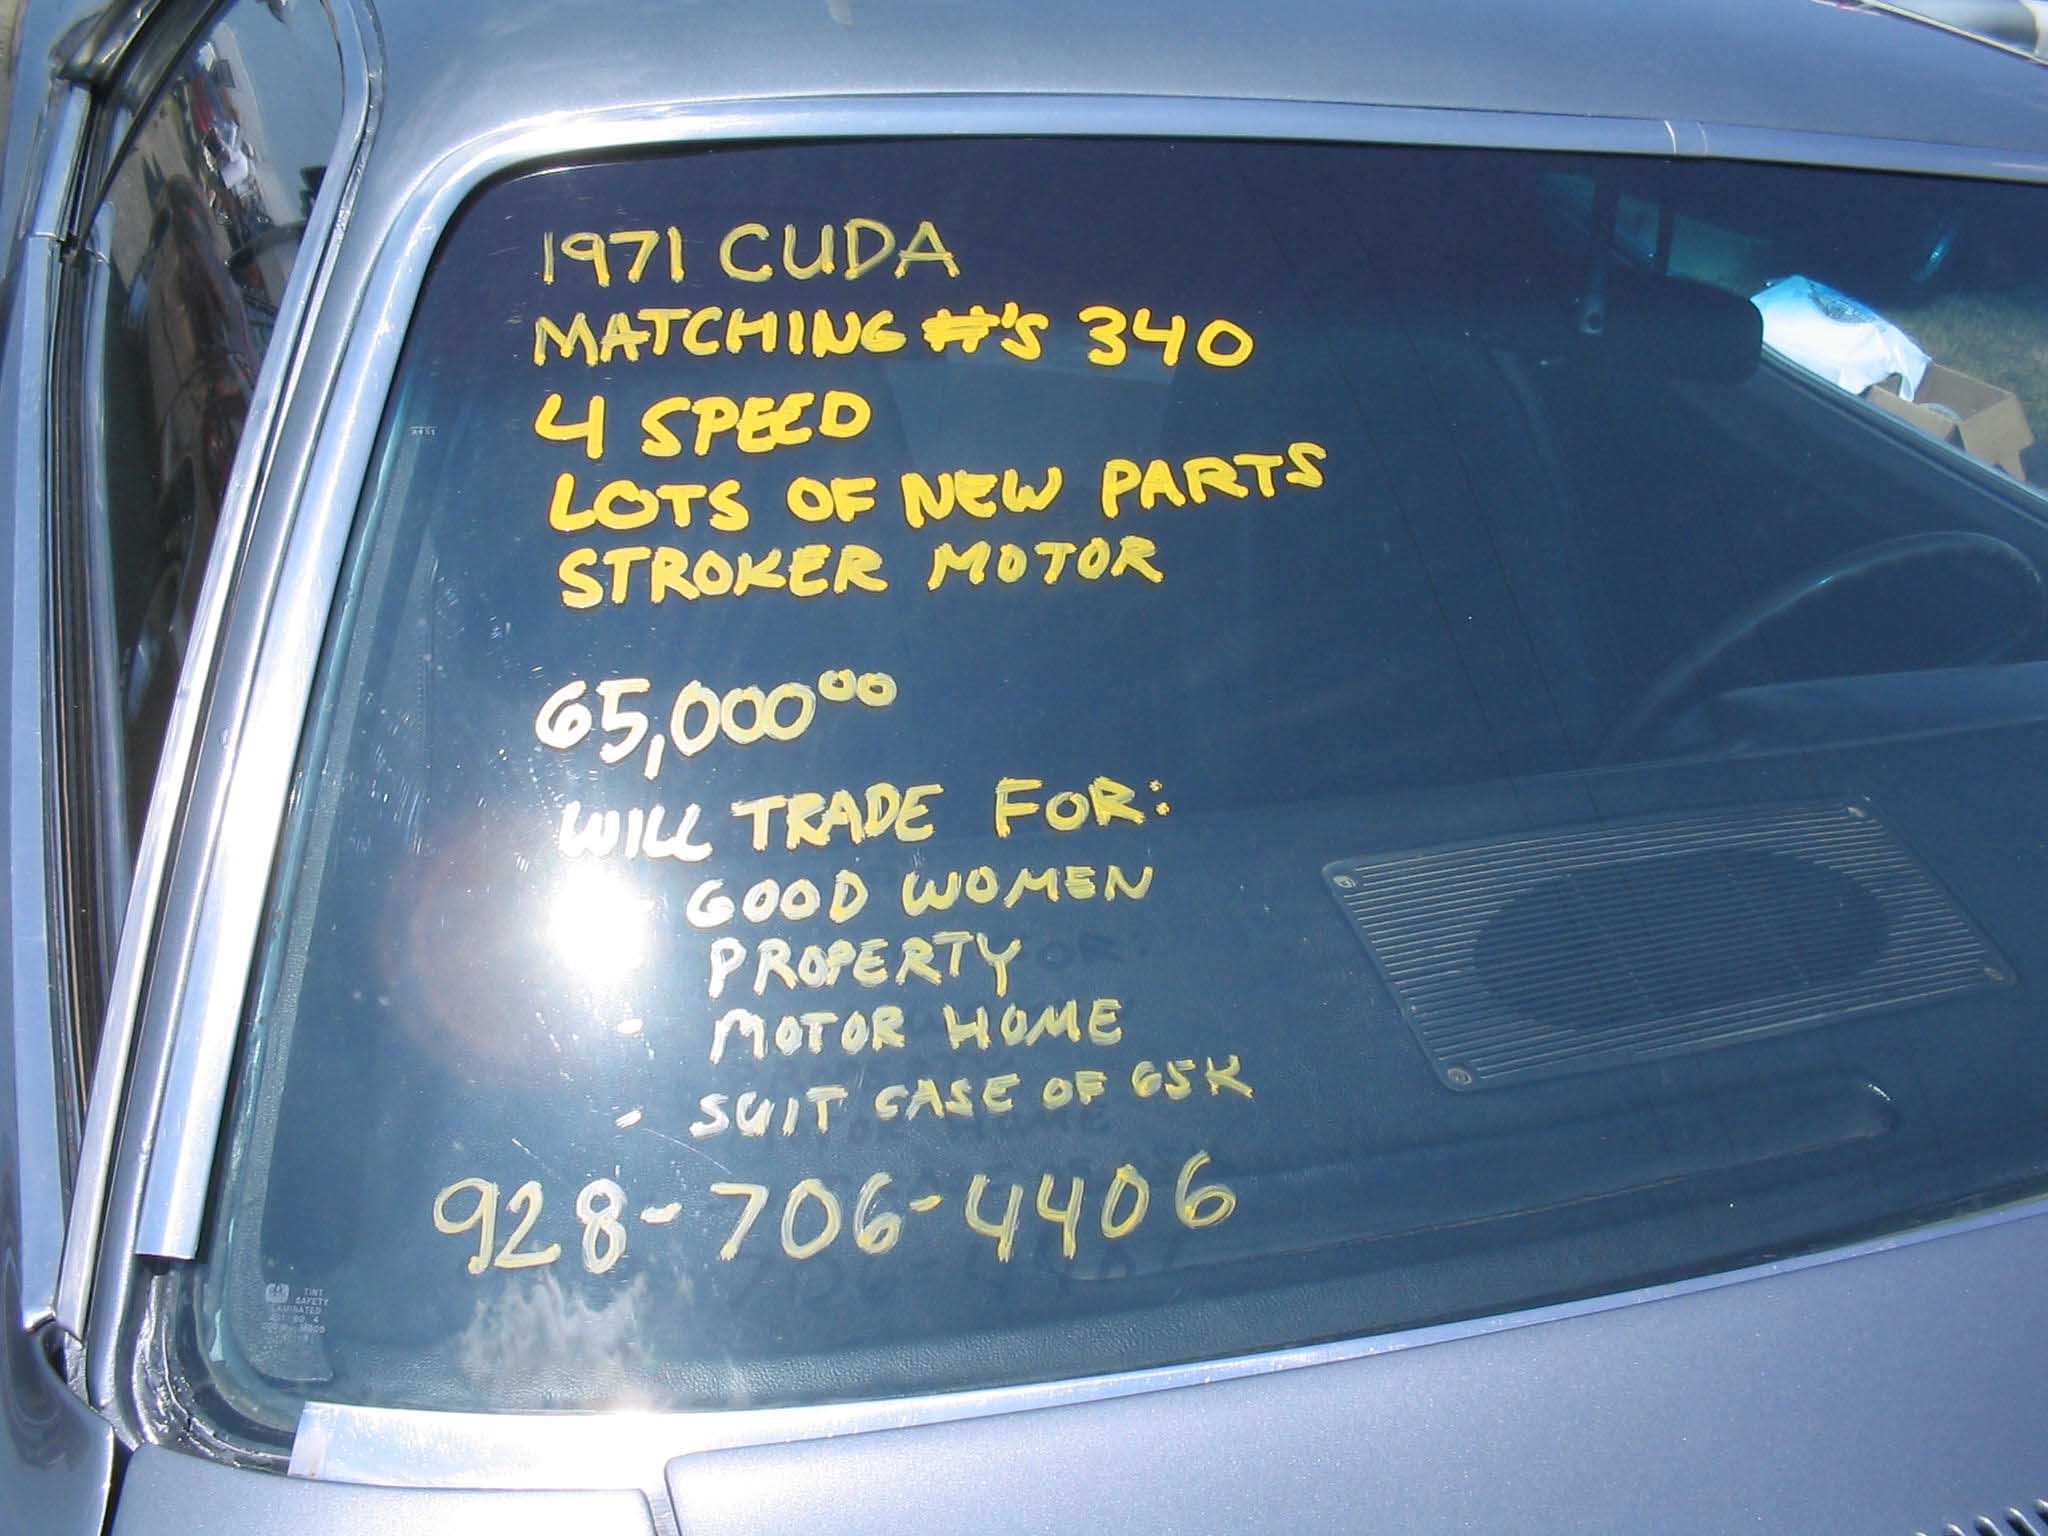 1971 CUDA
MATCHING #'S 340
4 SPEED
LOTS OF NEW PARTS
STROKER MOTOR
65,000⁰⁰
WILL TRADE FOR:
- GOOD WOMEN
PROPERTY
- MOTOR HOME
- SUIT CASE OF 65K
928-706-4406
TINT
SAFETY
LAMINATED